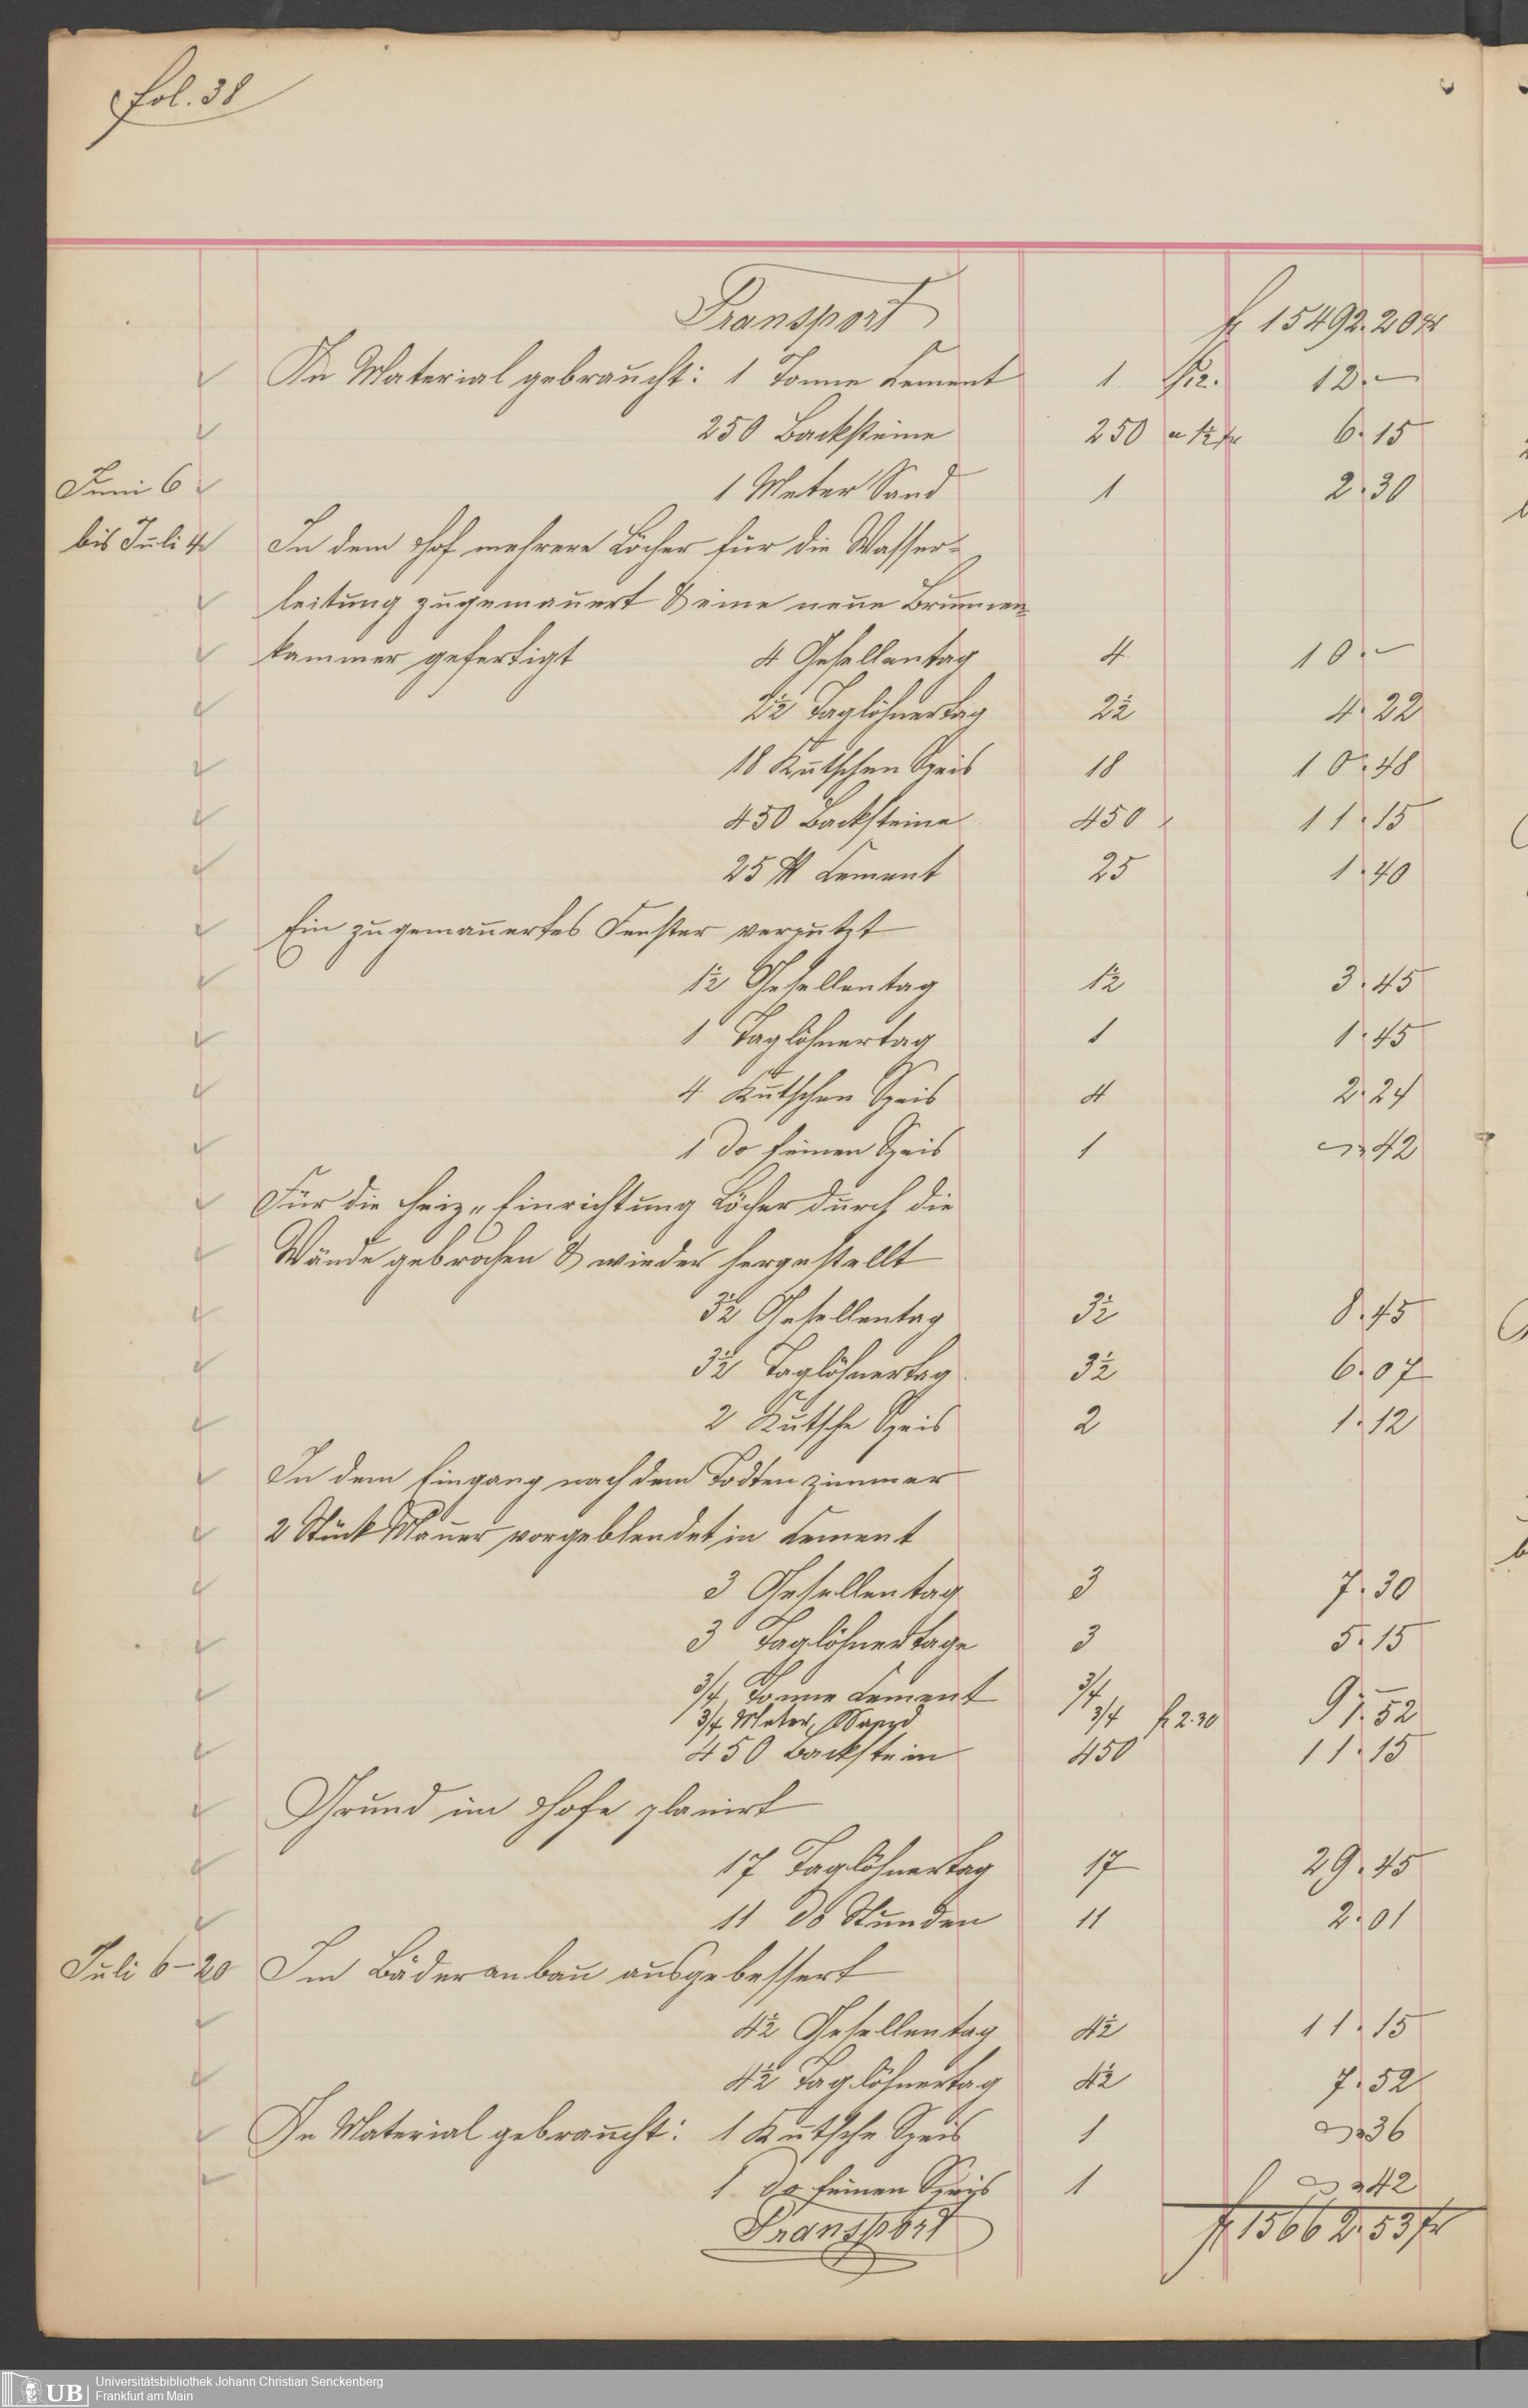 fol. 38
Transport f 15492. 20 kr
An Material gebraucht: 1 Tonne Cement 1 f 12. 12. —
250 Backsteine 250 a 1½ kr 6. 15
Juni 6 1 Meter Sand 1 2. 30
bis Juli 4 In dem Hof mehrere Löcher für die Wasser-
leitung zugemauert & eine neue Brunnen-
kammer gefertigt 4 Gesellentag 4 10. —
2½ Taglöhnertag 2½ 4. 22
18 Kutschen Speis 18 10. 48
450 Backsteine 450 11. 15
25 ℔ Cement 25 1. 40
Ein zugemauertes Fenster verputzt
1½ Gesellentag 1½ 3. 45
1 Taglöhnertag 1 1. 45
4 Kutschen Speis 4 2. 24
1 do feinen Speis 1 42
Für die Heiz-Einrichtung Löcher durch die
Wände gebrochen & wieder hergestellt
3½ Gesellentag 3½ 8. 45
3½ Taglöhnertag 3½ 6. 07
2 Kutsche Speis 2 1. 12
In dem Eingang nach dem Todtenzimmer
2 Stück Mauer vorgeblendet in Cement
3 Gesellentag 3 7. 30
3 Taglöhnertage 3 5. 15
3/4 Tonne Cement 3/4 9. —
3/4 Meter Sand 3/4 f 2.30 1. 52
450 Backstein 450 11. 15
Grund im Hofe planirt
17 Taglöhnertag 17 29. 45
11 do Stunden 11 2. 01
Juli 6–20 Im Bäderanbau ausgebessert
4½ Gesellentag 4½ 11. 15
4½ Taglöhnertag 4½ 7. 52
An Material gebraucht: 1 Kutsche Speis 1 36
1 do feinen Speis 1 42
Transport f 15662. 53 kr
UB Universitätsbibliothek Johann Christian Senckenberg
Frankfurt am Main